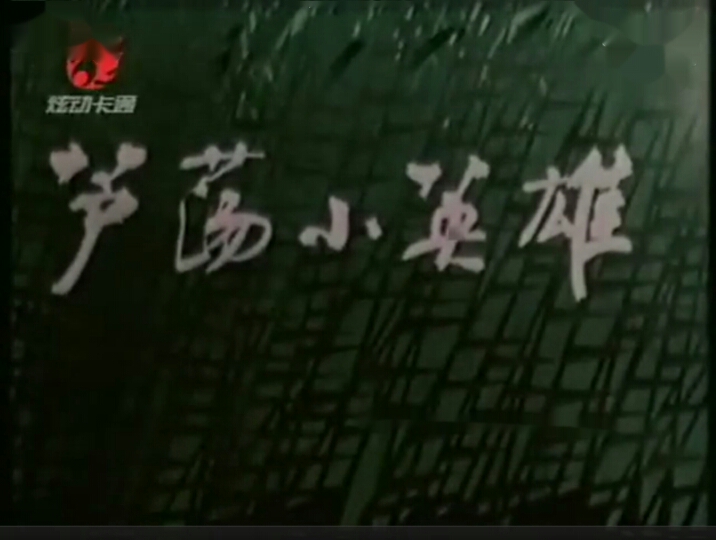 炫动卡通
芦荡小英雄